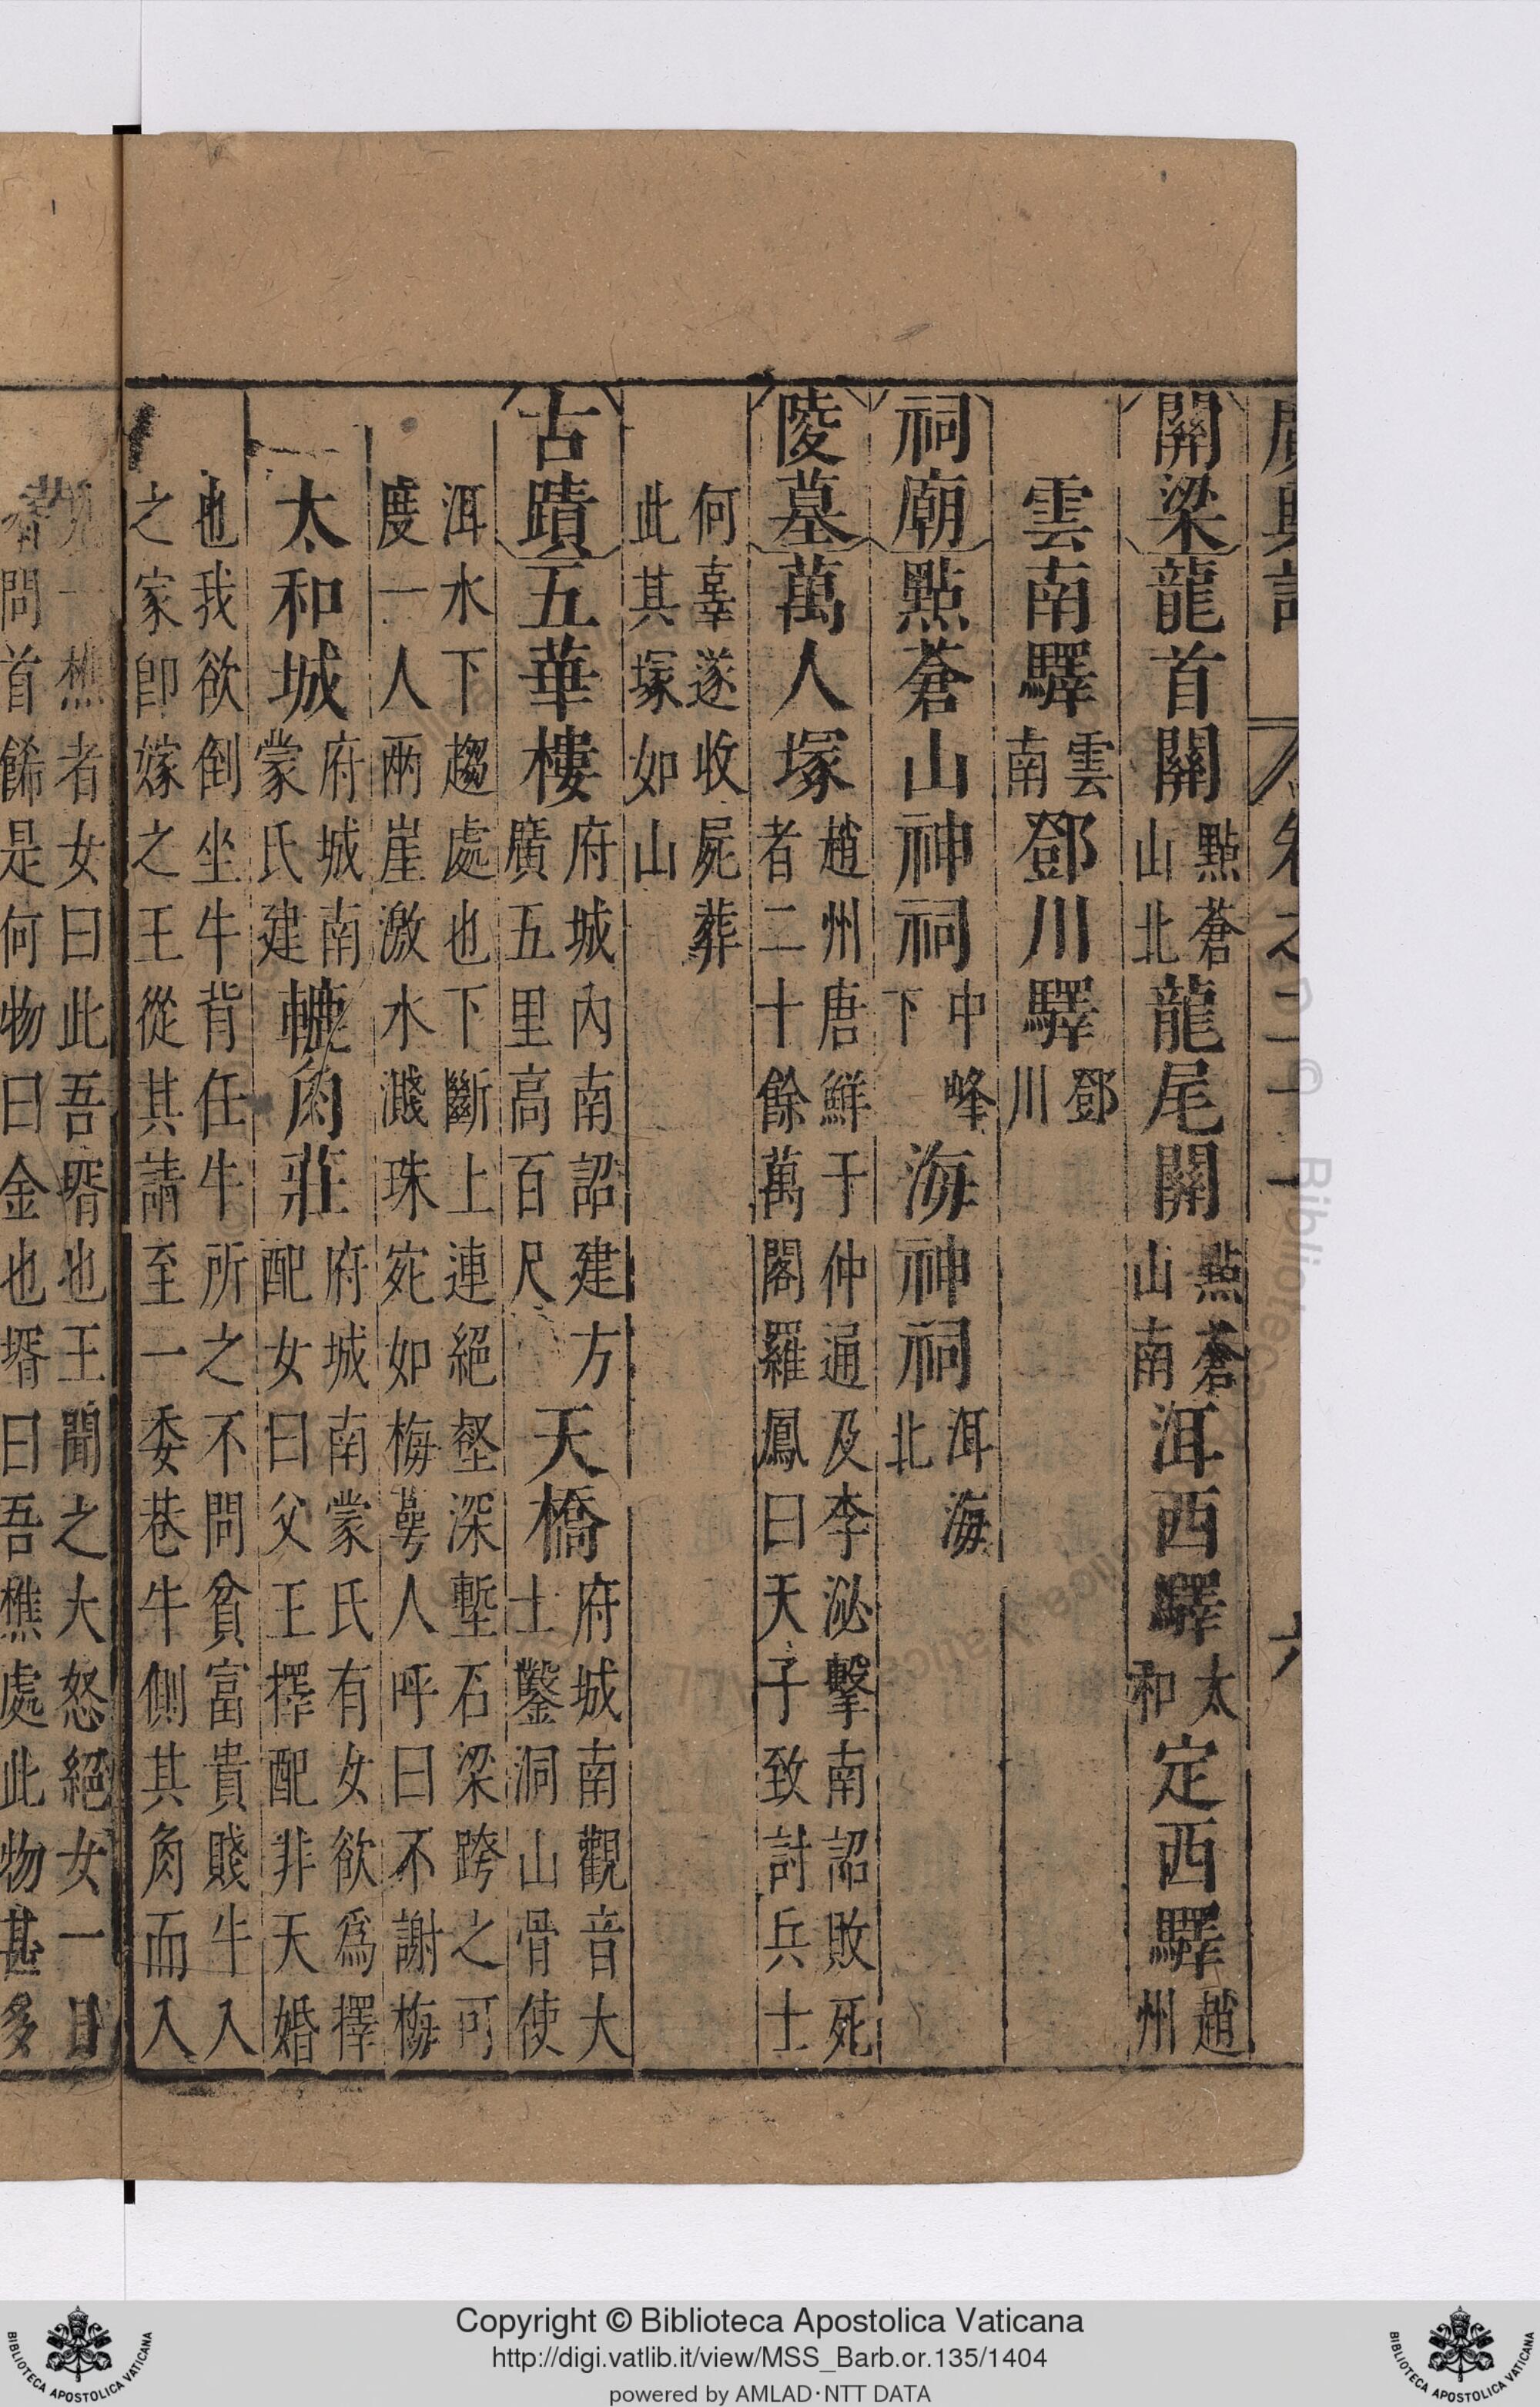 廣輿記 卷之二十一 六
關梁龍首關點蒼山北龍尾關點蒼山南洱西驛太和定西驛趙州
雲南驛雲南鄧川驛鄧川
祠廟點蒼山神祠中峰下海神祠洱海北
陵墓萬人塚趙州唐鮮于仲通及李泌擊南詔敗死者二十餘萬閣羅鳳曰天子致討兵士
何辜遂收屍葬此其塚如山
古蹟五華樓府城內南詔建方廣五里高百尺天橋府城南觀音大士鑿洞山骨使
洱水下趨處也下斷上連絕壑深塹石梁跨之可度一人兩崖激水濺珠宛如梅蕚人呼曰不謝梅
太和城府城南蒙氏建轆角莊府城南蒙氏有女欲爲擇配女曰父王擇配非天婚
也我欲倒坐牛背任牛所之不問貧富貴賤牛入之家卽嫁之王從其請至一委巷牛側其角而入
見一樵者女曰此吾壻也王聞之大怒絕女一日
壻問首餙是何物曰金也壻曰吾樵處此物甚多
Copyright © Biblioteca Apostolica Vaticana
http://digi.vatlib.it/view/MSS_Barb.or.135/1404
powered by AMLAD·NTT DATA
BIBLIOTECA APOSTOLICA VATICANA
BIBLIOTECA APOSTOLICA VATICANA